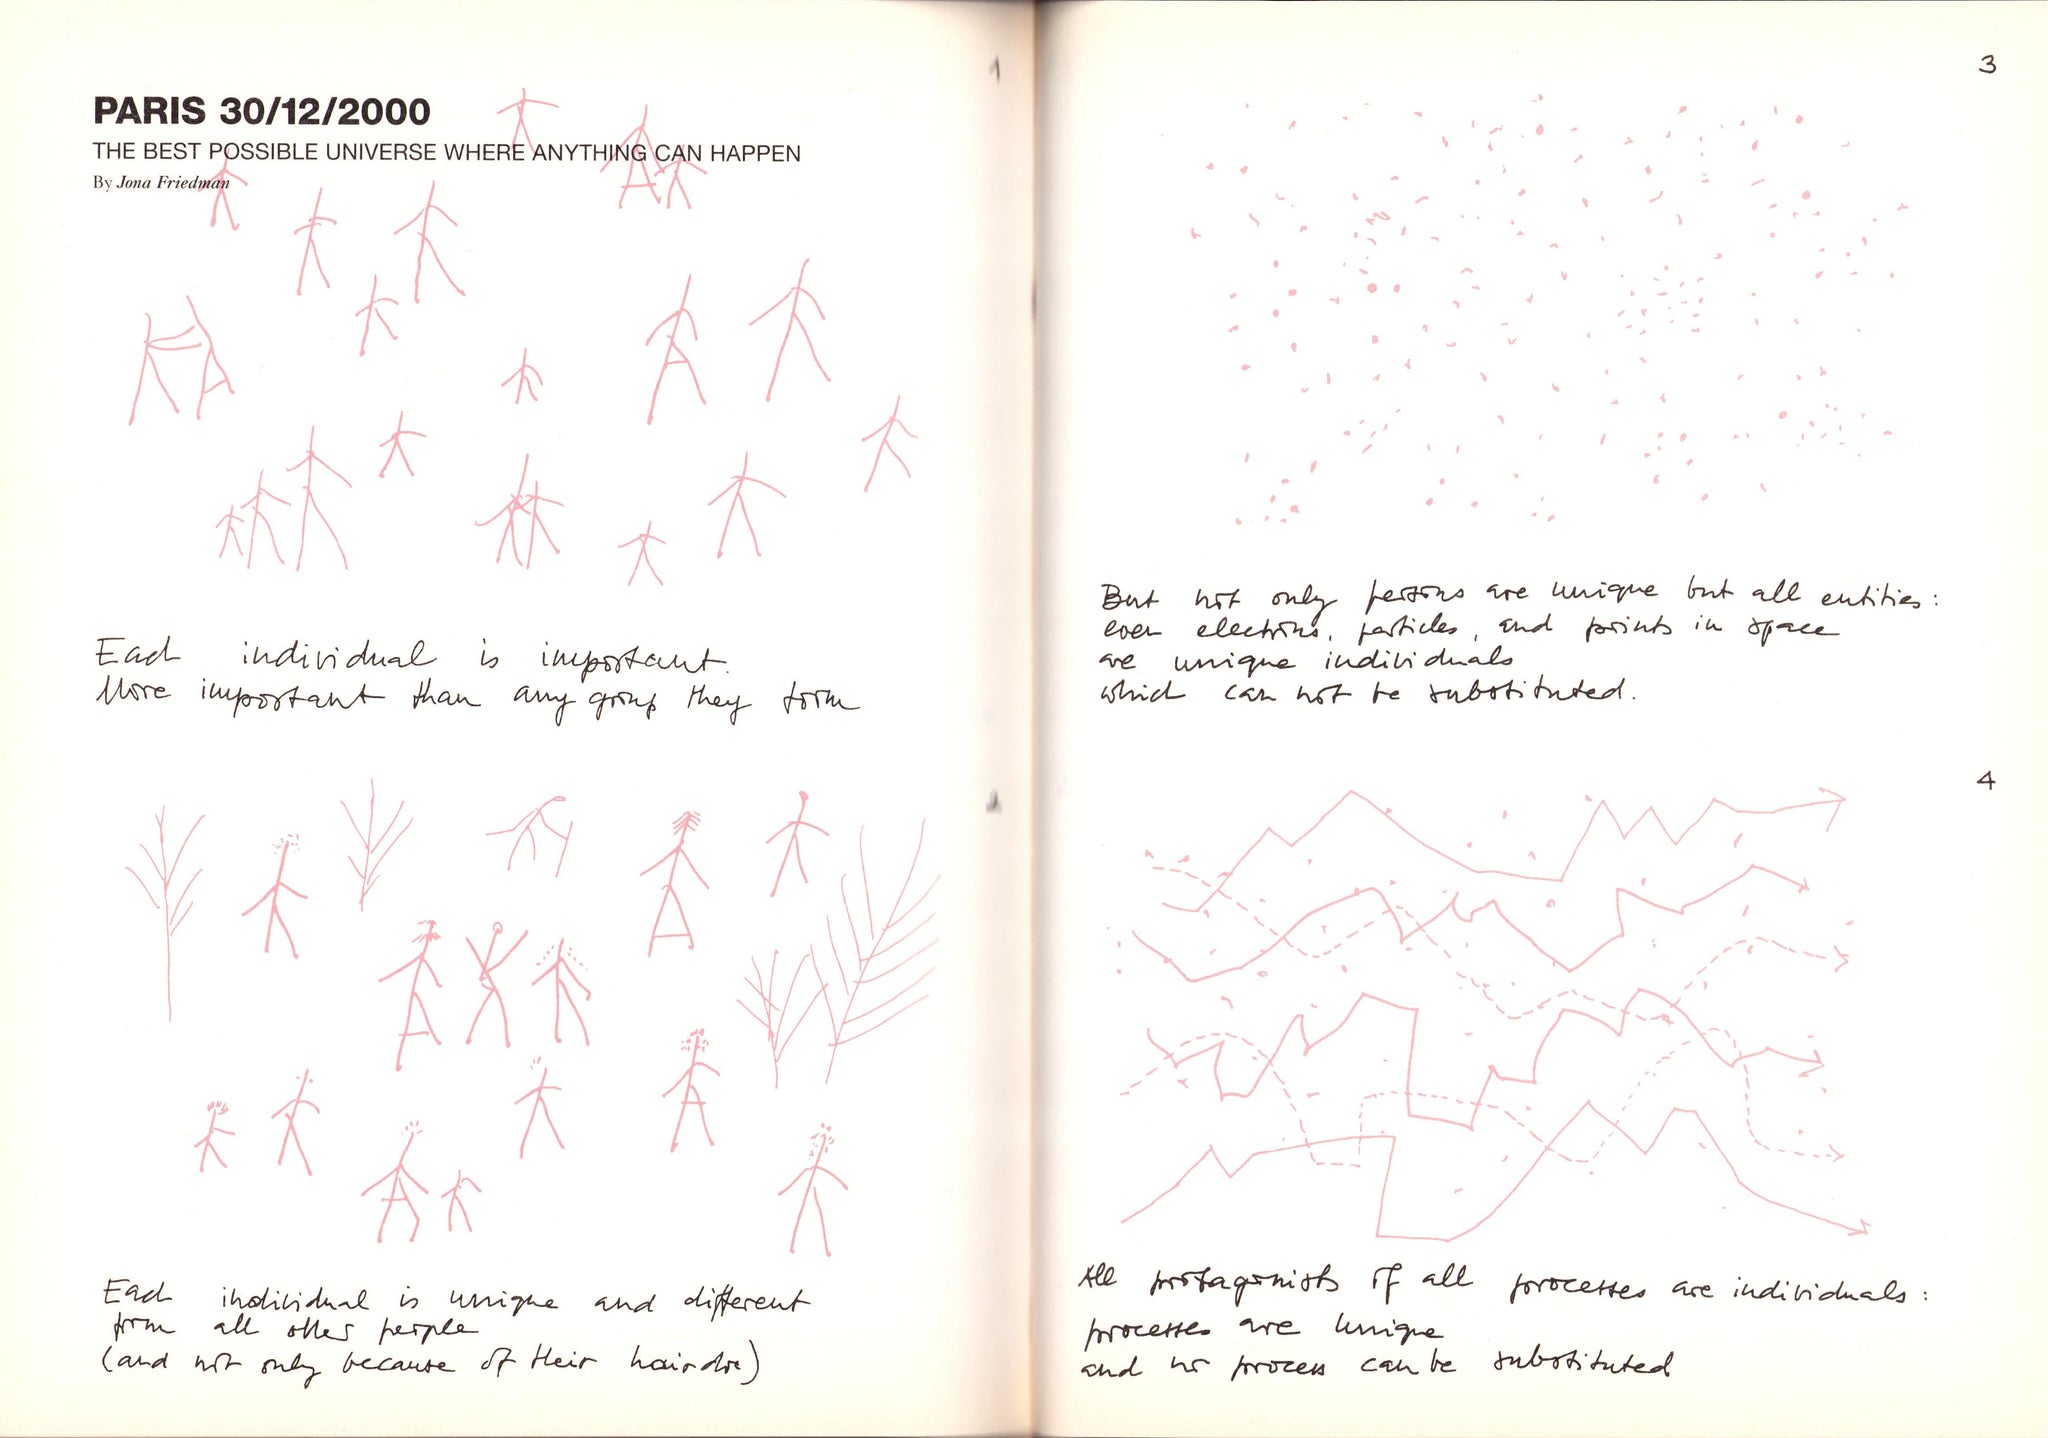 1
PARIS 30/12/2000
THE BEST POSSIBLE UNIVERSE WHERE ANYTHING CAN HAPPEN
By Jona Friedman
Each individual is important.
More important than any group they form
2
Each individual is unique and different
from all other people
(and not only because of their hairdo)
3
But not only persons are unique but all entities:
even electrons, particles, and points in space
are unique individuals
which can not be substituted.
4
All protagonists of all processes are individuals:
processes are unique
and no process can be substituted